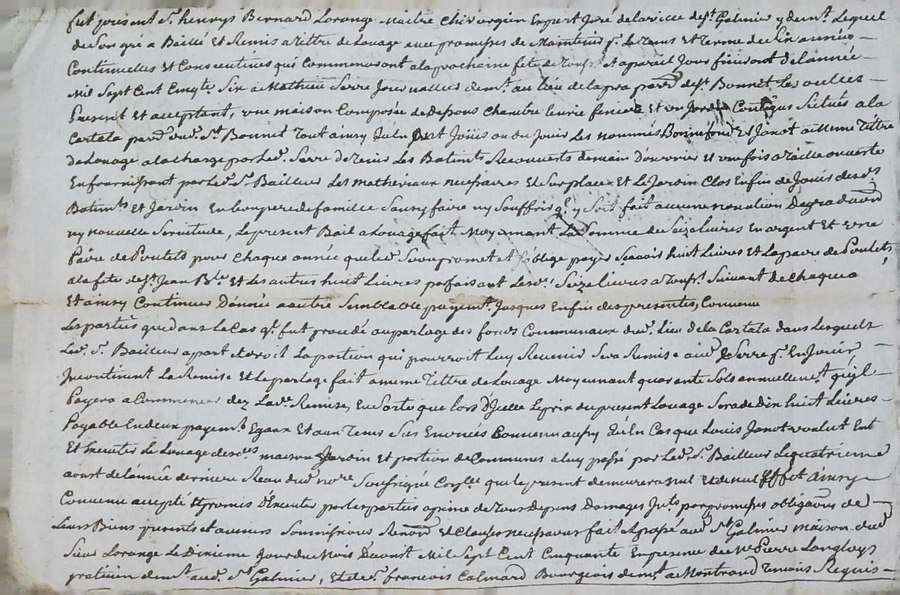 fut présent Sr. henrys Bernard Lorange Maitre chirurgien Expert Juré de la ville de St. Galmier y demt. Lequel
de Son gré a Baillé et Remis a tiltre de Louage avec promesses de Maintenir pr. le tems et terme de Six années
Continuelles et Consecutives qui Commenceront a la prochaine fete de touss. et a pareil Jour finiront de l'année
Mil Sept Cent Cinqte Six a Mathieu Serre Journallier demt. au lieu de la parr. de St. Bonnet Les oulles
present et acceptant, une maison Composée de dessous chambre Cuvie feniere et un Jardin Contigus Situés a la
Cartala parr. dud. St. Bonnet tout ainsy qu'en ont Joüis ou du Jouir les nommés Bonnefond et Janot a meme tiltre
de Louage a la charge par led. Serre de tenir Les Batimts. Recouverts de main d'ouvrier et une fois a taille ouverte
En fournissant par led. Sr. Bailleur Les matheriaux necessaires et Sur place et Le Jardin Clos Enfin de Jouir desds.
Batimts. et Jardin En bon pere de famille Sans y faire ny Souffrir qu'il y Soit fait aucune novation Degradaon
ny nouvelle Servitude, Le present Bail a Louage fait Moyennant La Somme de Seize livres en argent et une
Paire de Poulets pour Chaque année que led. Serre promet et s'oblige payer Scavoir huit Livres et La paire de Poulets
a la fete de St. Jean Bte. et Les autres huit Livres parfaisant Lesd. Seize livres a touss. Suivant de chaque a
Et ainsy Continuer D'année a autre Semblable payemt. Jusques Enfin des presentes, Convenu
Les parties que dans le Cas qu. fut procedé au partage des fonds Communaux dud. Lieu de la Cartala dans Lesquels
Led. Sr. Bailleur a part et droit La portion qui pourroit Luy Revenir Sera Remise aud. Serre pr. En Jouir
Incontinent La Remise et Le partage fait a meme tiltre de Louage Moyennant quarante Sols annuellement qu'il
Payera a Commencer dez Lade. Remise, En Sorte que lors D'jcelle Le prix du present Louage Sera de Dix huit Livres
Payable En deux payemts. Egaux et aux tems Sus Enoncés Convenu aussy qu'En Cas que Louis Janot voulut Ent
Et Executer Le Louage desdes. maison Jardin et portion de Communes a luy passé par Led. Sr. Bailleur Le quatrieme
aoust de l'année derniere Receu dud. nore. Soussigné Le present demeurera nul et de nul Effet ainsy
Convenu accepté et promis D'Executer par les parties a peine de tous Depens Domages Jnts. par promesses obligaons de
Leurs Biens presents et avenirs Soumissions Renon. et Clauses necessaires fait et passé aud. St. Galmier maison dud
Sieur Lorange Le Dixieme Jour du Mois Daoust Mil Sept Cent Cinquante En presence de Me Pierre Langloys
praticien demt. aud. St. Galmier, et de Sr. françois Calmard Bourgeois demt. a Montrond temoins Requis